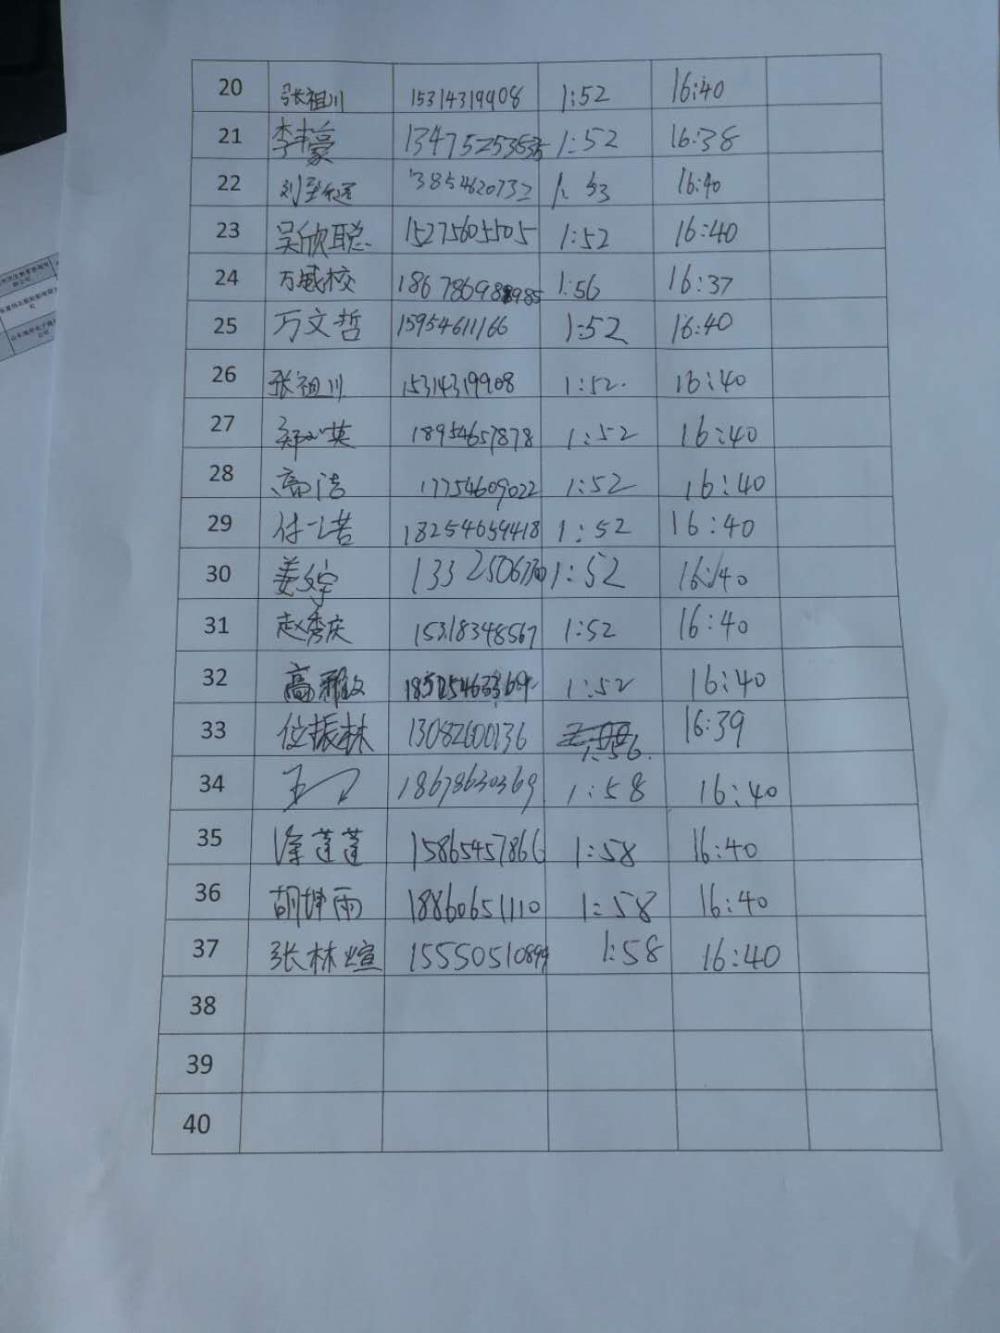 20 张祖川 15314319908 1:52 16:40
21 李丰豪 1:52 16:38
22 13854620732 1:53 16:40
23 吴欣聪 15275605505 1:52 16:40
24 万盛校 1:56 16:37
25 万文哲 15954611166 1:52 16:40
26 张祖川 15314319908 1:52. 16:40
27 18954657878 1:52 16:40
28 高洁 17754609022 1:52 16:40
29 18254659418 1:52 16:40
30 姜文宇 1:52 16:40
31 赵秀庆 15318348567 1:52 16:40
32 1:52 16:40
33 位振林 13082600136 1:56. 16:39
34 18678630369 1:58 16:40
35 逄莲莲 15865457866 1:58 16:40
36 胡坤雨 18860651110 1:58 16:40
37 张林煊 15550510899 1:58 16:40
38
39
40